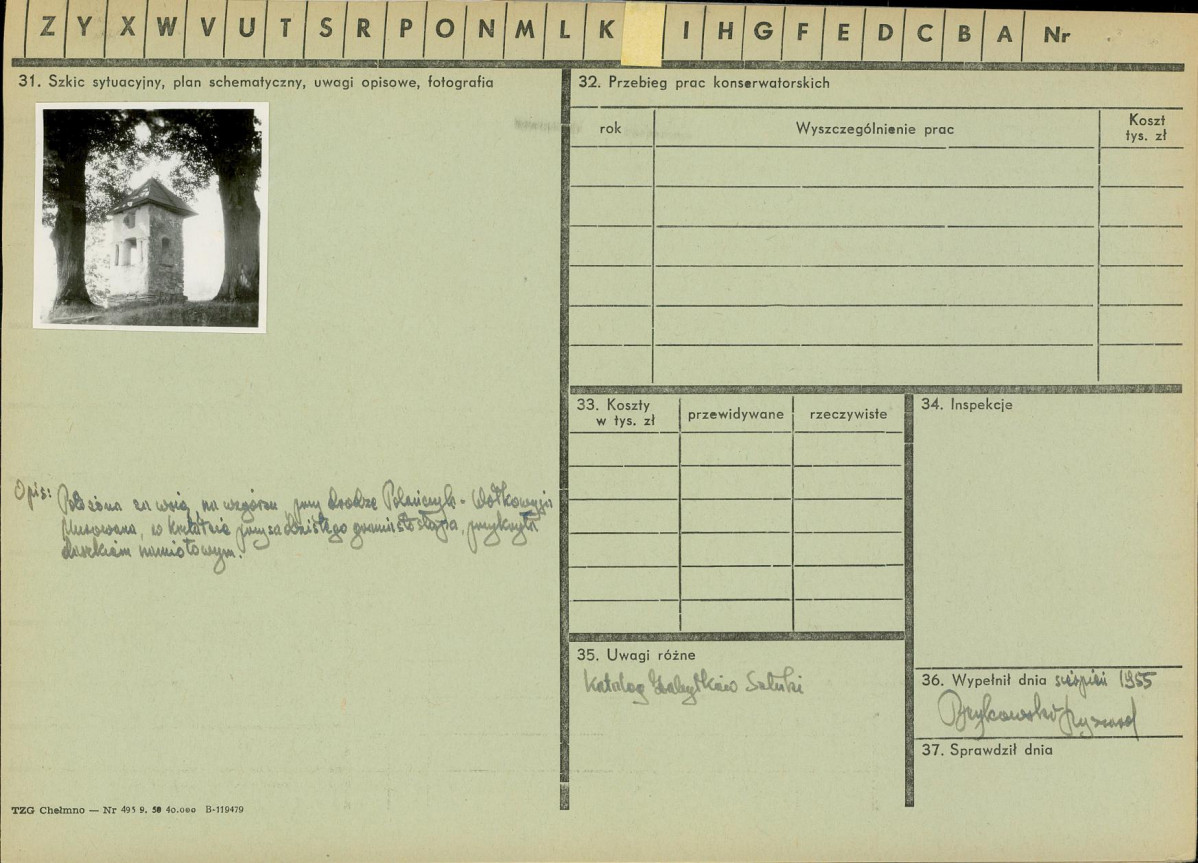 Z Y X W V U T S R P O N M L K I H G F E D C B A Nr
31. Szkic sytuacyjny, plan schematyczny, uwagi opisowe, fotografia
Opis: Położona za wsią, na wzgórzu, przy drodze Polańczyk - Wołkowyja
Murowana, w kształcie przysadzistego graniastosłupa, przykryta
daszkiem namiotowym.
TZG Chełmno — Nr 495 9. 50 40.000 B-119479
32. Przebieg prac konserwatorskich
rok
Wyszczególnienie prac
Koszt
tys. zł
33. Koszty
w tys. zł
przewidywane
rzeczywiste
34. Inspekcje
35. Uwagi różne
Katalog Zabytków Sztuki
36. Wypełnił dnia sierpień 1955
Brykowski Ryszard
37. Sprawdził dnia